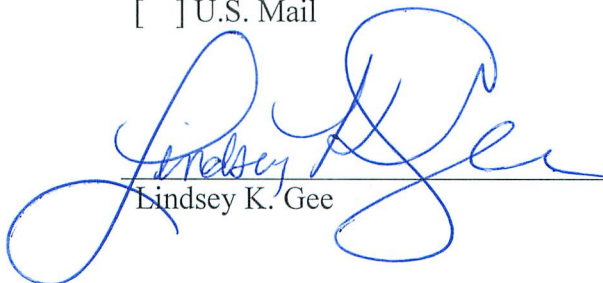 [ ] U.S. Mail
Lindsey K Gee
Lindsey K. Gee